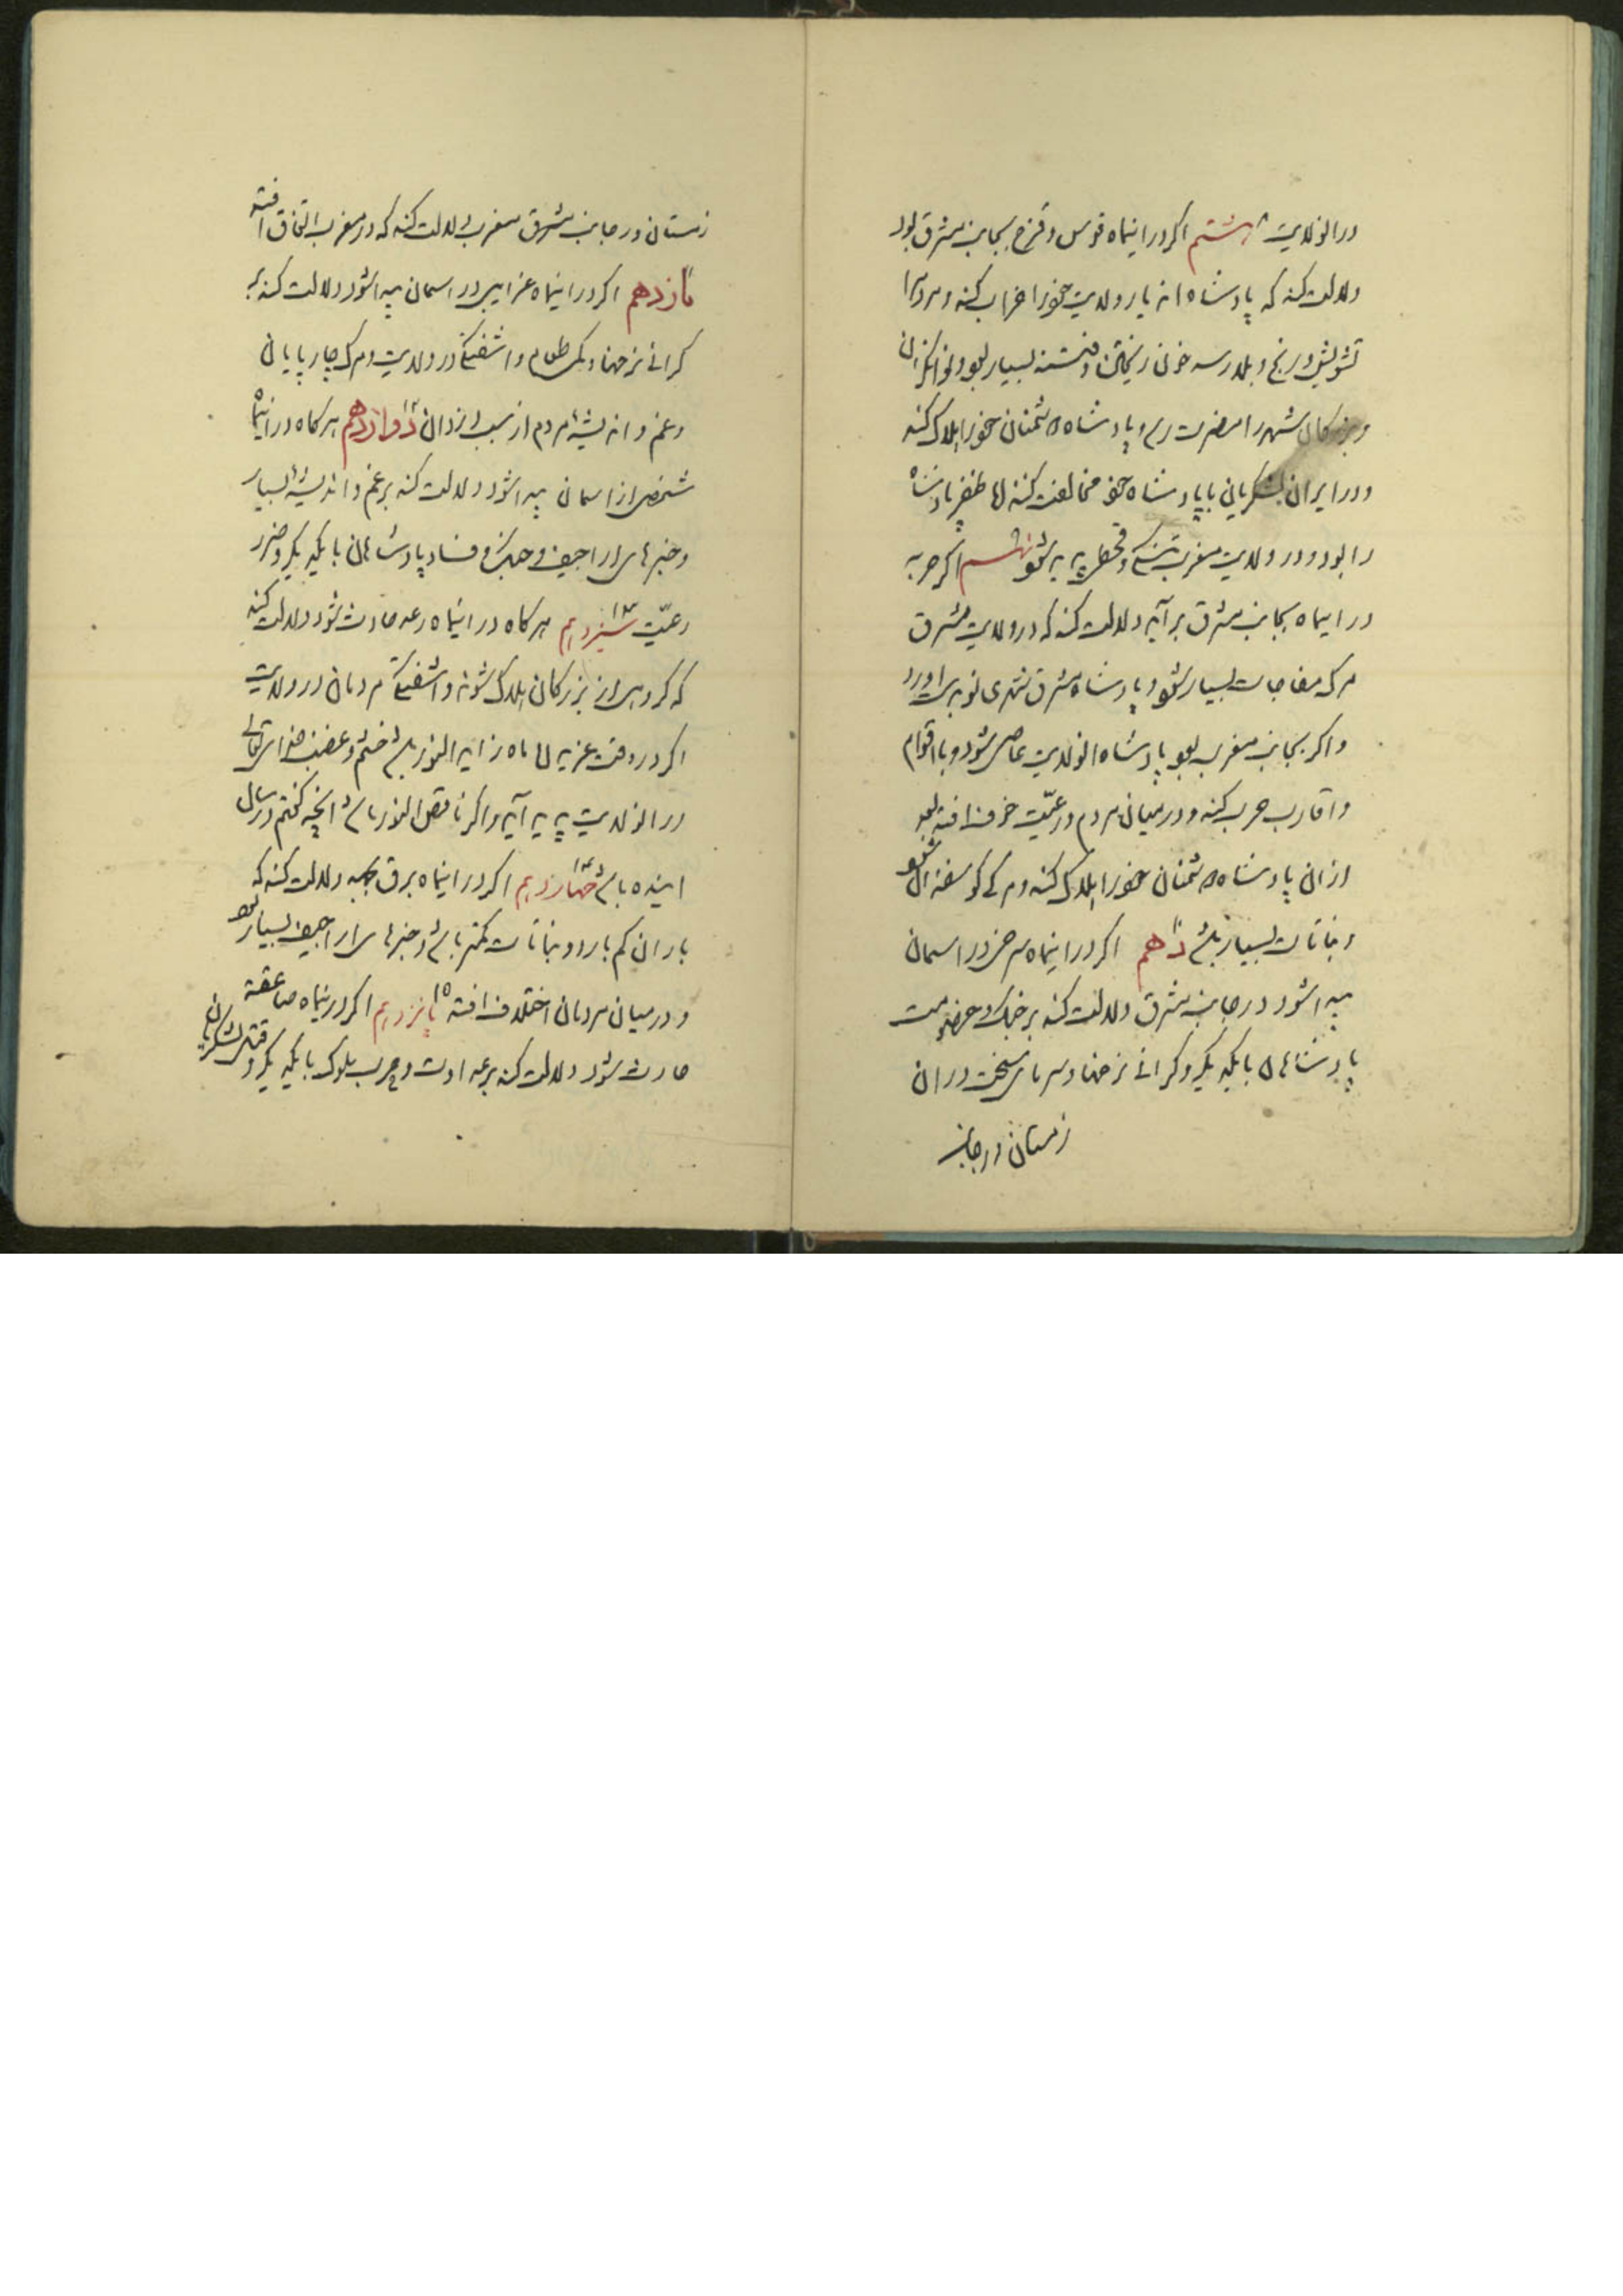 در انولایت ۸ هشتم اکر در اینماه قوس و قزح بجانب مشرق بود
دلالت کند که پادشاه اندیار ولایت خود را خراب کند و مردم را
تشویش و رنج و بلا رسد خون ریختن و فتنه بسیار بود و توانکران
و بزرکان شهر را مضرت رسد و پادشاه دشمنان خود را هلاک کند
و در ایران لشکریان با پادشاه خود مخالفت کنند اما ظفر پادشاه
را بود و در ولایت مغرب تنکی و قحطی پدید شود نهم اکر حربه
در اینماه بجانب مشرق برآید دلالت کند که در ولایت مشرق
مرک مفاجات بسیار شود و پادشاه مشرق شهری نو بدست اورد
و اکر بجانب مغرب بود پادشاه انولایت عاصی شود و با اقوام
و اقارب حرب کند و در میان مردم و رعیّت خوف افتد بعد
از ان پادشاه دشمنان خود را هلاک کند و مرک کوسفندان شود
و نباتات بسیار باشد ۱۰ دهم اکر در اینماه سرخی در اسمان
پیدا شود در جانب مشرق دلالت کند بر جنک و خصومت
پادشاهان با یکدیکر و کرانی نرخها و سرمای سخت در ان
زمستان در جانب
زمستان در جانب مشرق مغرب دلالت کند که در مغرب اتفاق افتد
۱۱ یازدهم اکر در اینماه غرایبی در اسمان پیدا شود دلالت کند بر
کرانی نرخها و کمی طعام و اشفتکی در ولایت و مرک چارپایان
و غم و اندیشهٔ مردم از سبب دزدان ۱۲ دوازدهم هر کاه در اینماه
شخصی از اسمان پیدا شود دلالت کند بر غم و اندیشهٔ بسیار
و خبرهای اراجیف و جنک و فساد پادشاهان با یکدیکر و ضرر
رعیّت ۱۳ سیزدهم هر کاه در اینماه رعد حادث شود دلالت کند
که کروهی از بزرکان هلاک شوند و اشفتکی مردمان در ولایت
اکر در وقت غریدن ماه زاید النور باشد خشم و غضب خدای تعالی
در انولایت پدید آید و اکر ناقص النور باشد انچه کفتم در سال
اینده باشد ۱۴ چهاردهم اکر در اینماه برق بجهد دلالت کند که
باران کم بارد و نباتات کمتر باشد و خبرهای اراجیف بسیار بود
و در میان مردمان اختلاف افتد ۱۵ پانزدهم اکر در اینماه صاعقه
حادث شود دلالت کند بر عداوت و حرب ملوک با یکدیکر و قتل لشکریان